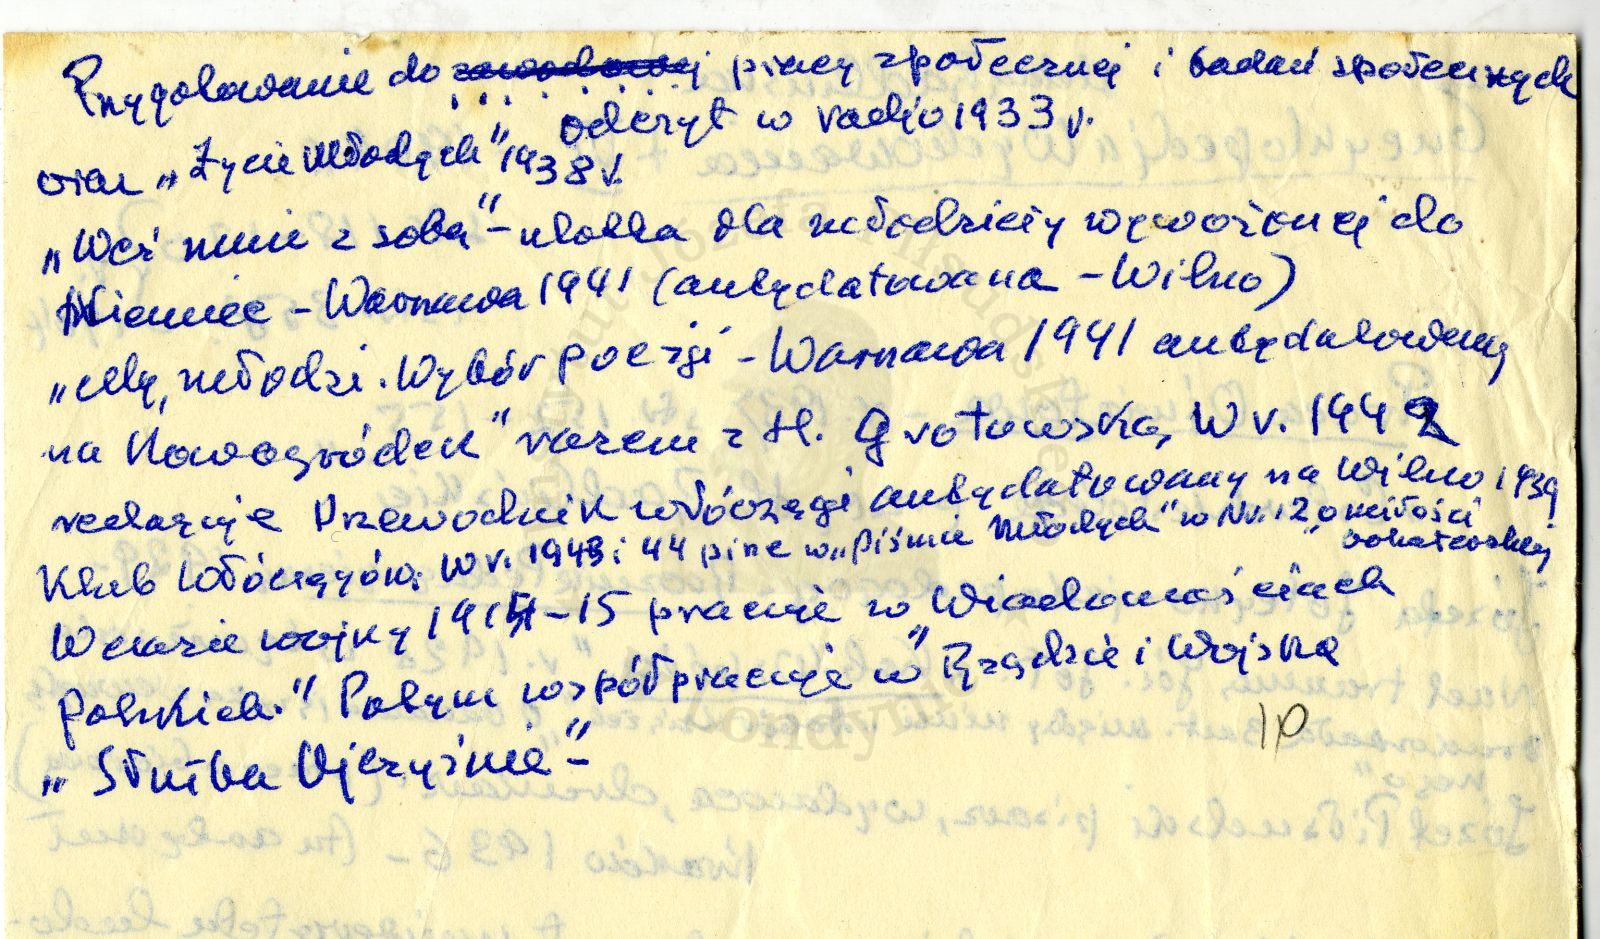 Przygotowanie do zawodowej pracy społecznej i badań społecznych
odczyt w radjo 1933 r.
oraz „Życie Młodych” 1938 r.
„Weź mnie z sobą” - ulotka dla młodzieży wywożonej do
Niemiec - Warszawa 1941 (antydatowana - Wilno)
„My, młodzi. Wybór poezji - Warszawa 1941 antydatowany
na Nowogródek” razem z H. Grotowską, W r. 1942
redaguje Przewodnik włóczęgi antydatowany na Wilno 1939
Klub Włóczęgów. W r. 1943 i 44 pisze w „Piśmie Młodych” w Nr. 12 „o miłości
bohaterskiej
W czasie wojny 1914-15 pracuje w Wiadomościach
Polskich.” Potym współpracuje w „Rządzie i Wojsku
„Służba Ojczyźnie” -
IP
Instytut Józefa Piłsudskiego
Londyn